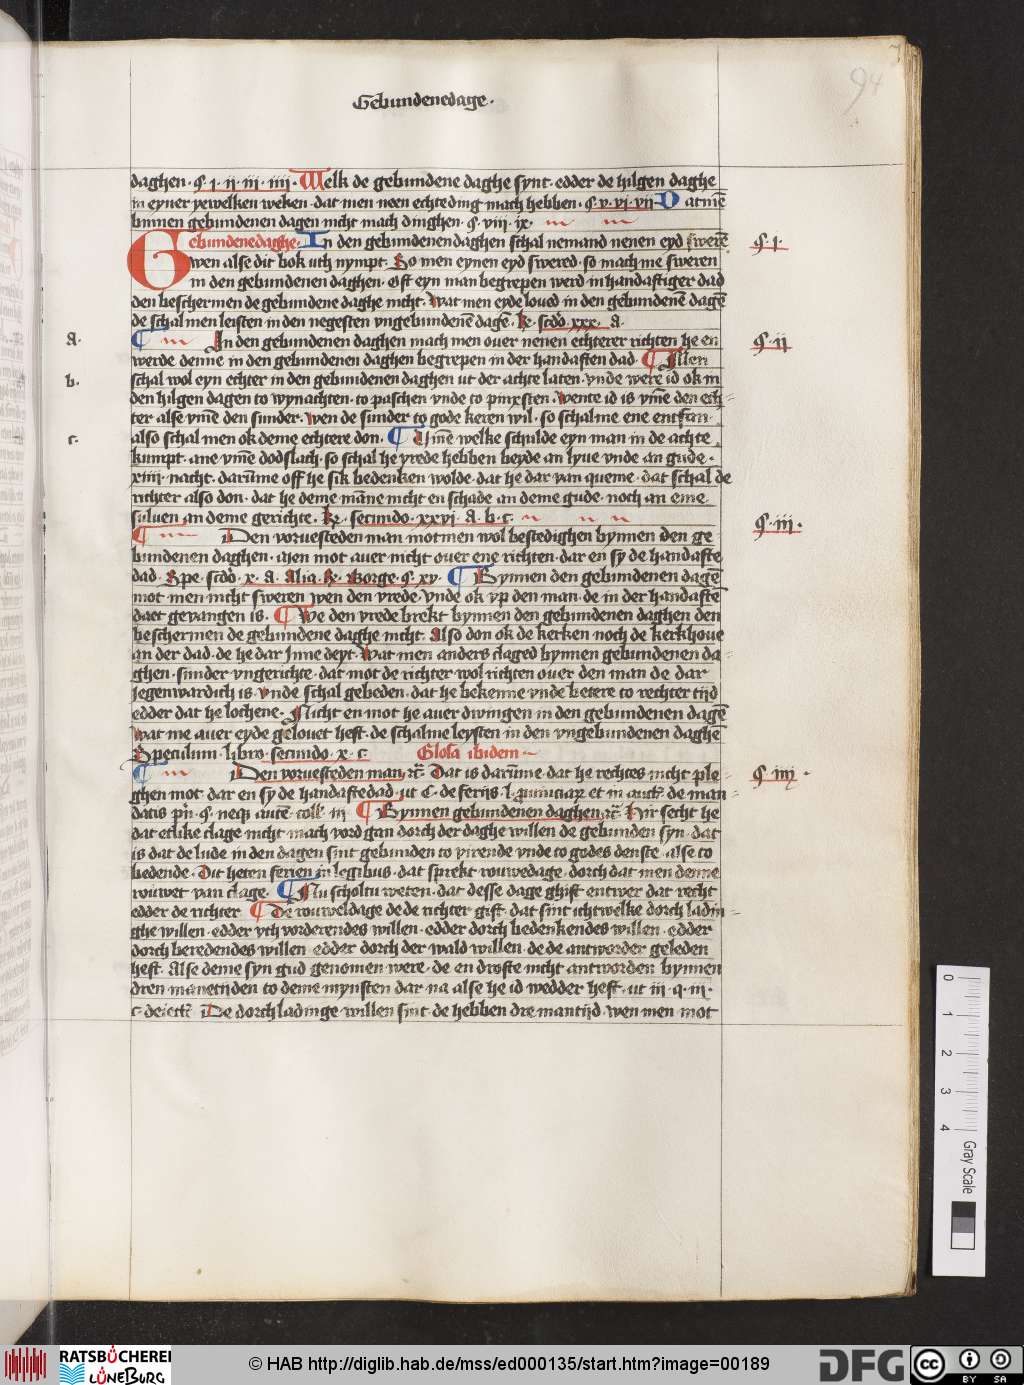 Gebundenedage.
94
daghen · §· i · ii · iii · iiii · Welk de gebundene daghe synt · edder de hilgen daghe
in eyner yewelken weken · dat men neen echteding mach hebben · §· v · vi · vii · Datmē
binnen gebundenen dagen nicht mach dinghen · §· viii · ix ·
Gebundenedaghe · In den gebundenendaghen schal nemand nenen eyd swerē §· i ·
wen alse dit bok uth nympt · So men eynen eyd swered · so mach me sweren
in den gebundenen daghen · Oft eyn man begrepen werd in handaftiger dad
den beschermen de gebundene daghe nicht · Wat men eyde loued in den gebundenē dagē
de schal men leisten in den negesten vngebundenē dagē · R. scdo xxx · a ·
a · In den gebundenen daghen mach men ouer nenen echterer richten he en §· ii
werde denne in den gebundenen daghen begrepen in der handaften dad · Men
b · schal wol eyn echter in den gebundenen daghen ut der achte laten · vnde were id ok in
den hilgen dagen to wynachten · to paschen vnde to pinxsten · Wente id is vmē den ech=
ter alse vmē den sunder · Wen de sunder to gode keren wil · so schalme ene entfan ·
c · also schal men ok deme echtere don · Umē welke schulde eyn man in de achte
kumpt · ane vmē dodslach · so schal he vrede hebben beyde an lyue vnde an gude ·
xiiii · nacht · darūme off he sik bedenken wolde · dat he dar van queme · dat schal de
richter also don · dat he deme māne nicht en schade an deme gude · noch an eme
suluen an deme gerichte · R. secundo · xxvi · a · b · c ·
Den voruesteden man motmen wol bestedighen bynnen den ge §· iii ·
bundenen daghen · men mot auer nicht ouer ene richten · dar en sy de handafte
dad · Spe · scdo · x · a · Alia · R. Borge §· xv · Bynnen den gebundenen dagē
mot men nicht sweren wen den vrede · vnde ok vp den man · de in der handaftē
daet gevangen is · We den vrede brekt bynnen den gebundenen daghen den
beschermen de gebundene daghe nicht · Also don ok de kerken noch de kerkhoue
an der dad · de he dar Inne deyt · Wat men anders claged bynnen gebundenen da=
ghen · sunder vngerichte · dat mot de richter wol richten ouer den man de dar
jegenwardich is · vnde schal gebeden · dat he bekenne vnde betere to rechter tijd
edder dat he lochene · Nicht en mot he auer dwingen in den gebundenen dagē
Wat me auer eyde gelouet heft · de schalme leysten in den vngebundenen daghē
Speculum · libro · secundo · x · c · Glosa ibidem
Den voruesteden man · Dat is darūme · dat he rechtes nicht ple= §· iiii ·
ghen mot · dar en sy de handaftedad · ut C · de feriis · l · et in de man=
datis §· neqȝ · iii Bynnen gebundenen daghen · Hir secht he
dat etlike clage nicht mach vord gan dorch der daghe willen de gebunden syn · dat
is dat de lude in den dagen sint gebunden to virende vnde to godes denste · alse to
bedende · Dit heten ferien in legibus · dat sprekt rouwedage · dorch dat men denne
rouwet van clage · Nu scholtu weten · dat desse dage ghift entwer dat recht
edder de richter De rouweldage de de richter gift · dat sint ichtwelke dorch ladin=
ghe willen · edder vth vorderendes willen · edder dorch bedenkendes willen · edder
dorch beredendes willen · edder dorch der wald willen · de de antworder geleden
heft · Alse deme syn gud genomen were · de en drofte nicht antworden bynnen
dren manetijden to deme mynsten dar na alse he id wedder heft · ut iii · q · iii ·
c · De dorch ladinge willen sint · de hebben dre mantijd · wen men mot
0 1 2 3 4 Gray Scale
RATSBÜCHEREI LÜNEBURG
© HAB http://diglib.hab.de/mss/ed000135/start.htm?image=00189
DFG
cc BY SA